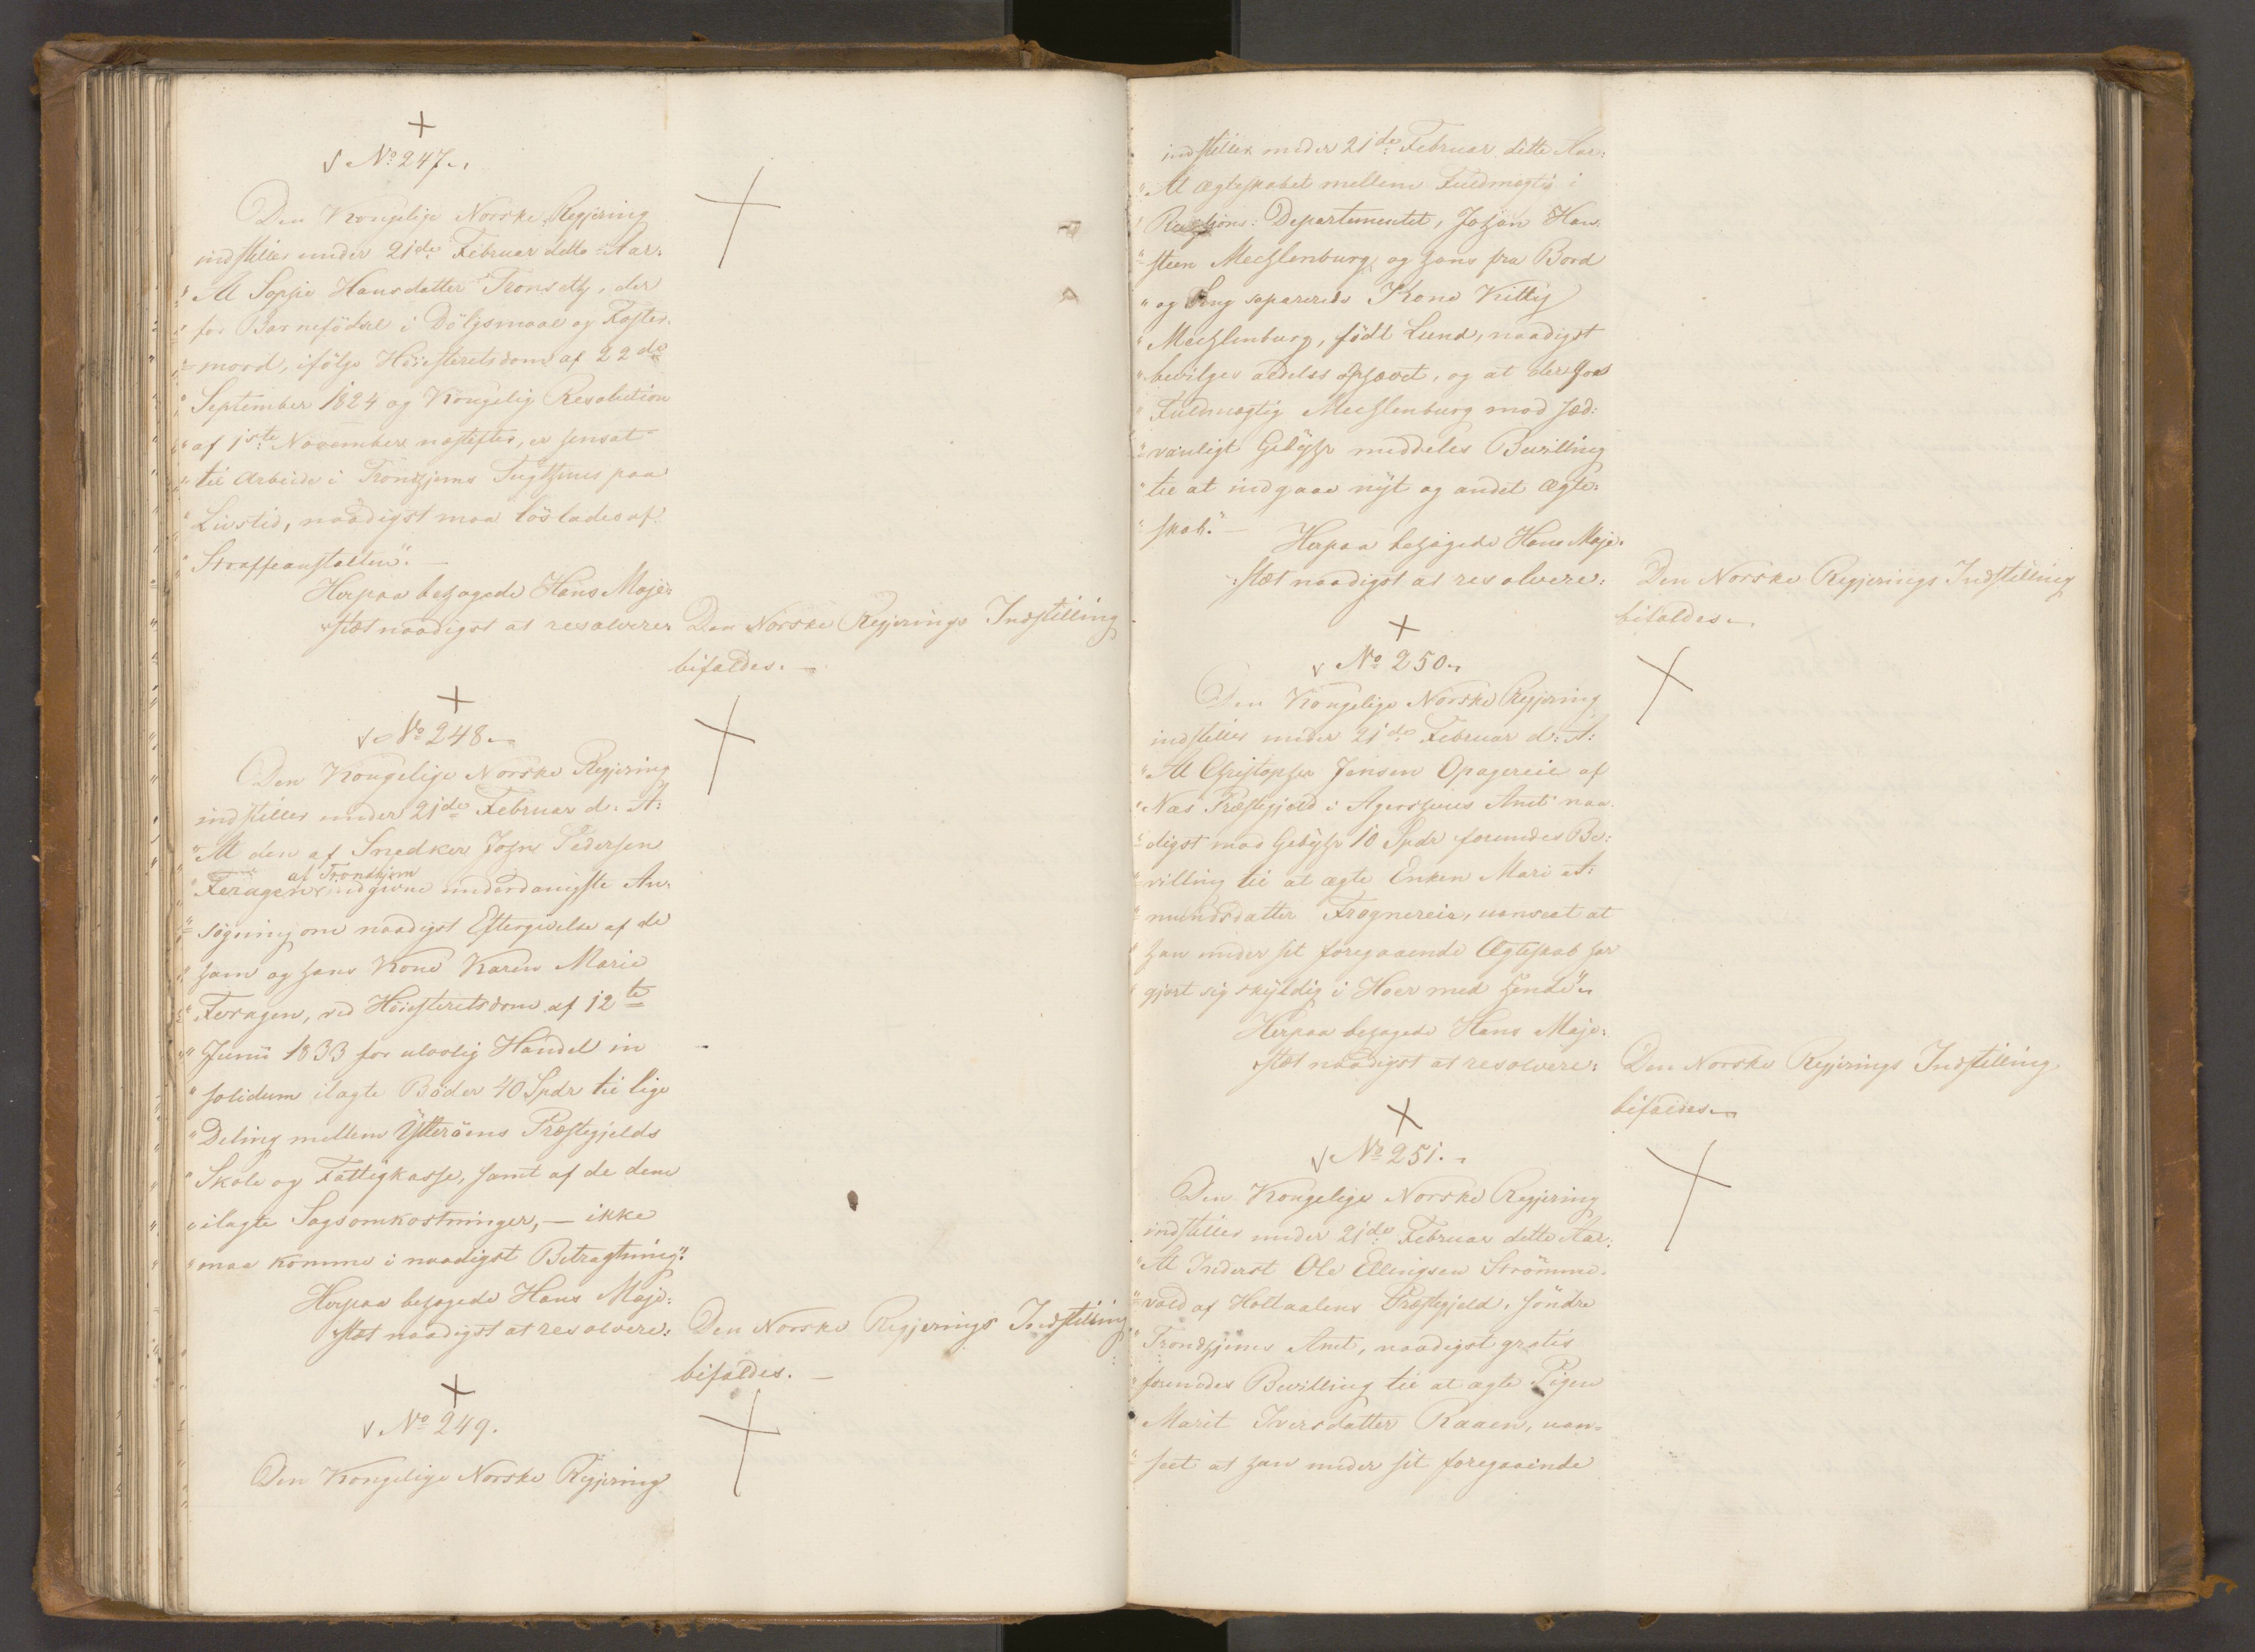 No 247.
Den Kongelige Norske Regjering
indstiller under 21de Februar dette Aar:
"At Sophie Hansdatter Tronseth, der
"for Barnefødsel i Dölgsmaal og Foster-
"mord, ifölge Höiesteretsdom af 22de
"September 1824 og Kongelig Resolution
"af 1ste November næstefter, er hensat
"til Arbeide i Trondhjems Tugthuus paa
"Livstid, naadigst maa löslades af
"Straffeanstalten". —
Herpaa behagede Hans Maje-
stæt naadigst at resolvere:
Den Norske Regjerings Indstilling
bifaldes. —
No 248.
Den Kongelige Norske Regjering
indstiller under 21de Februar d: A:
"At den af Snedker John Pedersen
af Trondhjem
"Feragen indgivne underdanigste An-
"søgning om naadigst Eftergivelse af de
"ham og hans Kone Karen Marie
"Feragen, ved Höiesteretsdom af 12te
"Junii 1833 for ulovlig Handel in
"solidum ilagte Böder 40 Spdr til lige
"Deling mellem Ytteröens Præstegjelds
"Skole og Fattigkasse, samt af de dem
"ilagte Sagsomkostninger, — ikke
"maa komme i naadigst Betragtning".
Herpaa behagede Hans Maje-
stæt naadigst at resolvere:
Den Norske Regjerings Indstilling
bifaldes. —
No 249.
Den Kongelige Norske Regjering
indstiller under 21de Februar dette Aar:
"At Ægteskabet mellem Fuldmægtig i
"Revisions: Departementet, Johan Han-
"steen Mechlenburg og hans fra Bord
"og Seng separerede Kone Kitty
"Mechlenburg, født Lund, naadigst
"bevilges aldeles ophævet, og at der
"Fuldmægtig Mechlenburg mod sæd-
"vanligt Gebyhr meddeles Bevilling
"til at indgaae nyt og andet Ægte-
"skab." —
Herpaa behagede Hans Maje-
stæt naadigst at resolvere:
Den Norske Regjerings Indstilling
bifaldes.
No 250.
Den Kongelige Norske Regjering
indstiller under 21de Februar d: A:
"At Christopher Jensen Opagereie af
"Næs Præstegjeld i Agershuus Amt naa-
"digst mod Gebyhr 10 Spdr forundes Be-
"villing til at ægte Enken Mari A-
"mundsdatter Frognereie, uanseet at
"han under sit foregaaende Ægteskab har
"gjort sig skyldig i Hoer med hende".
Herpaa behagede Hans Maje-
stæt naadigst at resolvere:
Den Norske Regjerings Indstilling
bifaldes.
No 251.
Den Kongelige Norske Regjering
indstiller under 21de Februar dette Aar:
"At Inderst Ole Ellingsen Strömme-
"vold af Holtaalens Præstegjeld, söndre
"Trondhjems Amt, naadigst gratis
"forundes Bevilling til at ægte Pigen
"Marit Iversdatter Raaen, uan-
"seet at han under sit foregaaende